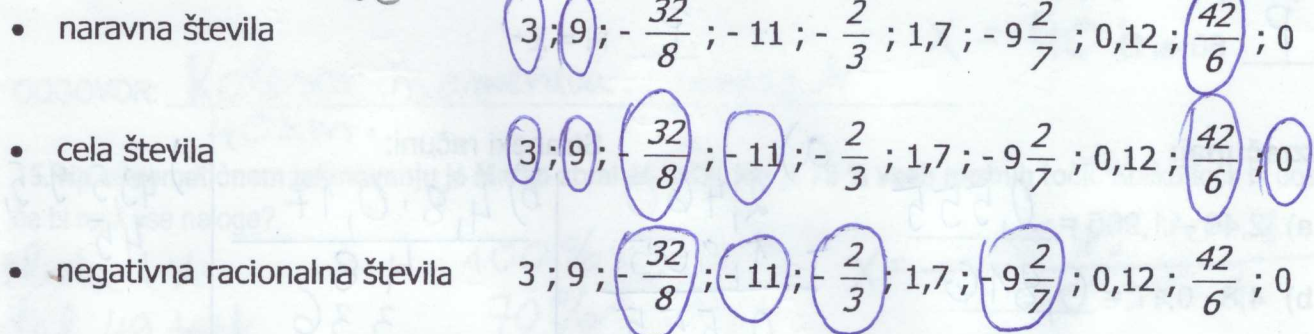 • naravna števila 3 ; 9 ; - 32/8 ; - 11 ; - 2/3 ; 1,7 ; - 9 2/7 ; 0,12 ; 42/6 ; 0
• cela števila 3 ; 9 ; - 32/8 ; - 11 ; - 2/3 ; 1,7 ; - 9 2/7 ; 0,12 ; 42/6 ; 0
• negativna racionalna števila 3 ; 9 ; - 32/8 ; - 11 ; - 2/3 ; 1,7 ; - 9 2/7 ; 0,12 ; 42/6 ; 0